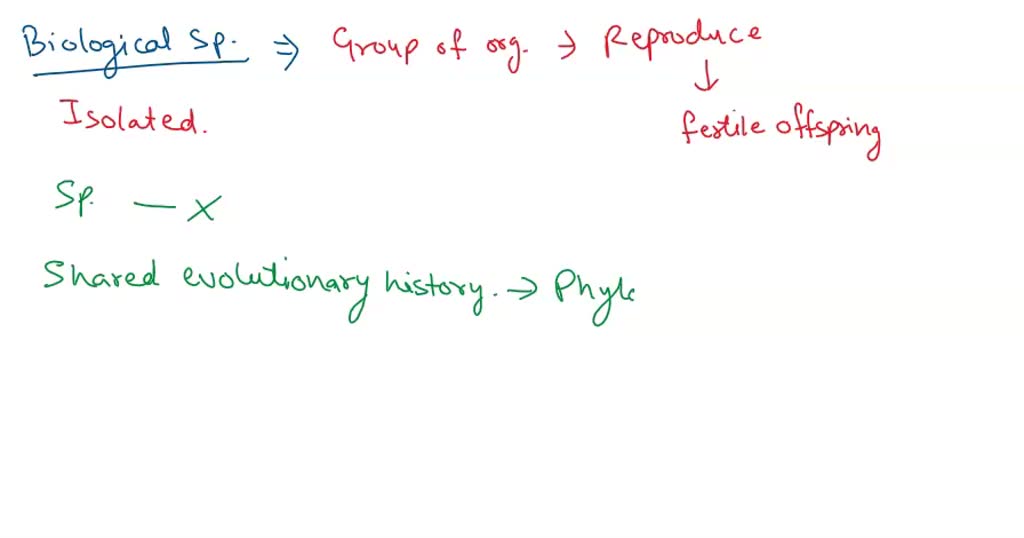 Biological Sp. ⇒ Group of org. → Reproduce
↓
Isolated. fertile offspring
Sp. — X
Shared evolutionary history. → Phyl